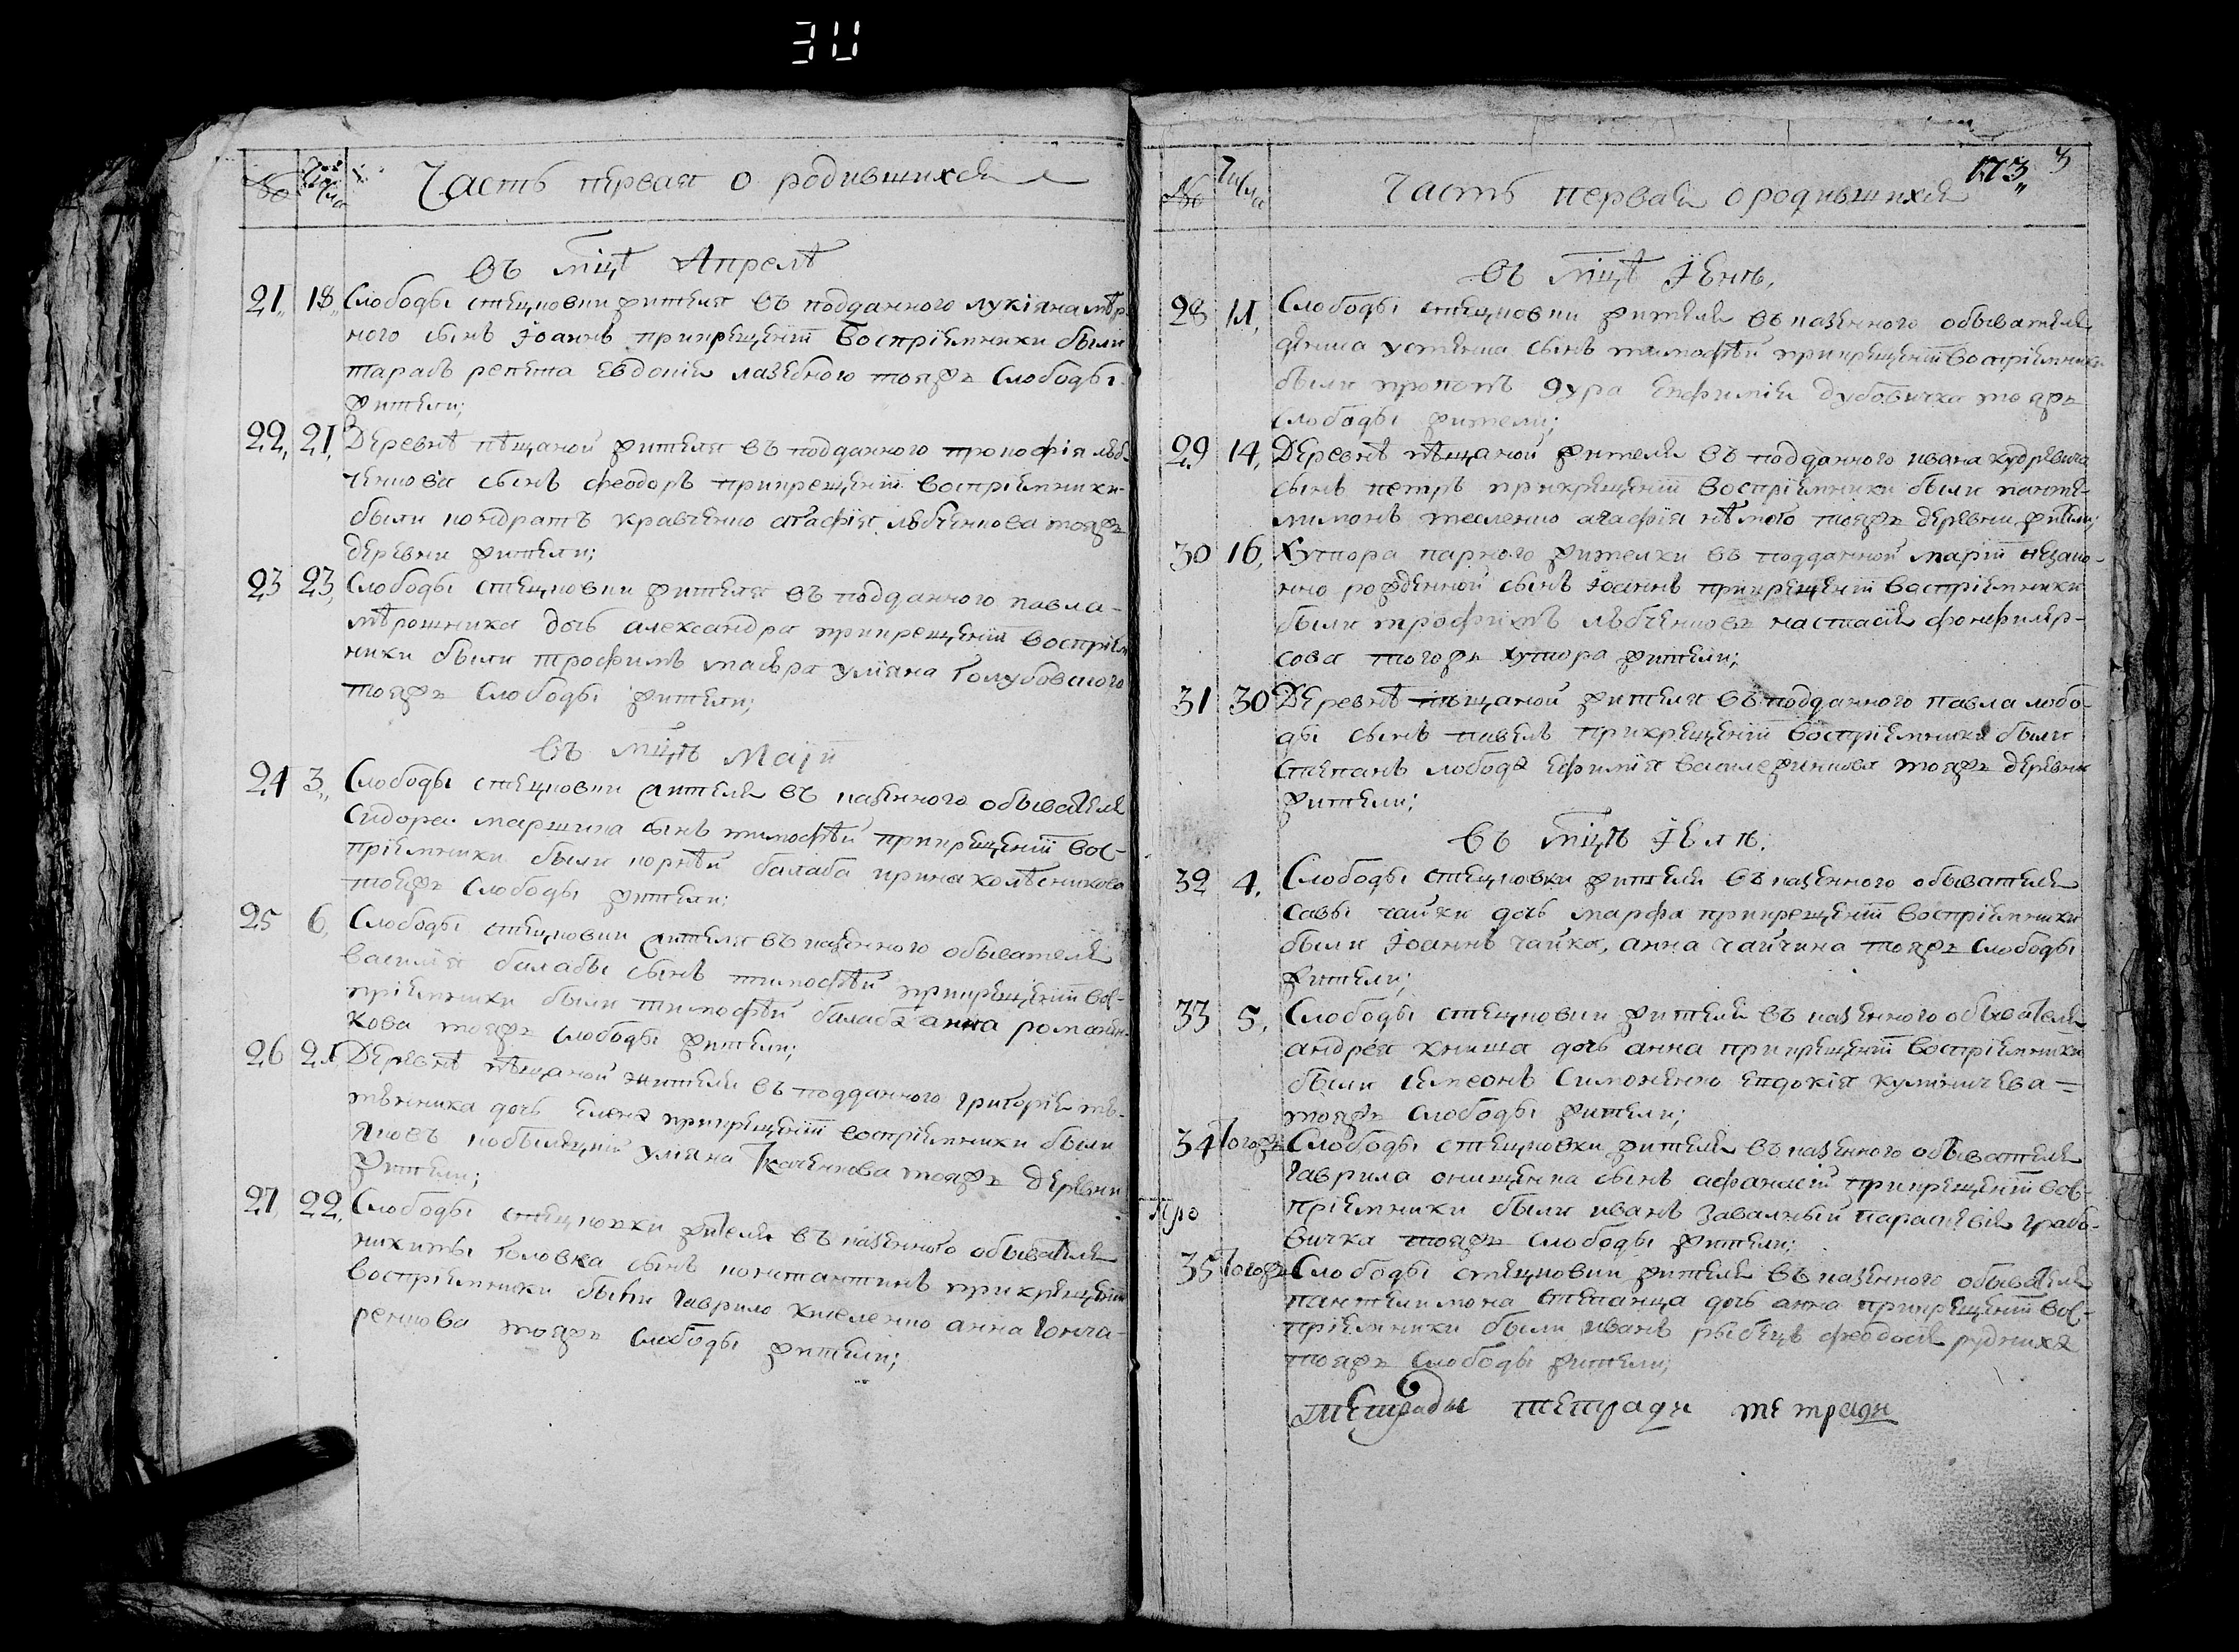 30
№ Числа Часть первая о родившихся
въ мцѣ Апрелѣ
21, 18, Слободы стецковки жителя въ подданного лукіяна мѣр-
ного сынъ Іоаннъ прикрещеніи воспріемники были
тарасъ репина Евдокія лазебного тояжъ Слободы
жители;
22, 21, Деревнѣ пѣщаной жителя въ подданного прокофія люб-
ченкова сынъ феодоръ прикрещеніи воспріемники
были кондратъ кравченко агафія любченкова тояжъ
деревни жители;
23 23, Слободы стецковки жителя въ подданного павла
мѣрошника дочь александра прикрещеніи воспріем
ники были трофимъ уліяна голубовского
тояжъ Слободы жители;
въ мцѣ Маіи
24 3, Слободы стецковки жителя въ казенного обывателя
Сидора маршика сынъ тимофѣй прикрещеніи вос-
пріемники были корнѣй балаба ирина колѣсникова
тояжъ Слободы жители;
25 6, Слободы стецковки жителя въ казенного обывателя
василія балабы сынъ тимофѣй прикрещеніи вос-
пріемники были тимофѣй балаба анна романен-
кова тояжъ Слободы жители;
26 21, Деревнѣ пѣщаной жителя въ подданного григорія
дочь Елена прикрещеніи воспріемники были
яковъ кобыляцкій уліяна Ткаченкова тояжъ деревни
жители;
27, 22, Слободы стецковки жителя въ казенного обывателя
никиты головка сынъ константинъ прикрещеніи
воспріемники были гаврило киселенко анна гонча-
ренкова тояжъ Слободы жители;
173, 3
№ Числа Часть первая о родившихся
въ мцѣ Іюнѣ,
28 11, Слободы стецковки жителя въ казенного обывателя
дениса устенка сынъ тимофѣй прикрещеніи воспріемники
были прокопъ дура Евфимія дубовичка тояжъ
слободы жители;
29 14, Деревнѣ пѣщаной жителя въ подданного ивана кудревича
сынъ петръ прикрещеніи воспріемники были панте-
лимонъ тесленко агафія нѣмого тояжъ деревни жители;
30 16, Хутора парного жителки въ подданной маріи незако-
нно рожденной сынъ Іоаннъ прикрещеніи воспріемники
были трофимъ любченковъ настасія
сова тогожъ хутора жители;
31 30 Деревнѣ пѣщаной жителя въ подданного павла лобо-
ды сынъ павелъ прикрещеніи воспріемники были
степанъ лобода Ефимія тояжъ деревни
жители;
въ мцѣ Іюлѣ.
32 4, Слободы стецковки жителя въ казенного обывателя
савы чайки дочь марфа прикрещеніи воспріемники
были Іоаннъ чайка, анна чайчина тояжъ Слободы
жители;
33 5, Слободы стецковки жителя въ казенного обывателя
андрея книша дочь анна прикрещеніи воспріемники
были семеонъ симоненко евдокія кулиничева
тояжъ слободы жители;
34 тогожъ Слободы стецковки жителя въ казенного обывателя
гаврила онищенка сынъ афанасій прикрещеніи вос-
Про пріемники были иванъ завалный параскевія грабо-
вичка тояжъ Слободы жители;
35 тогожъ Слободы стецковки жителя въ казенного обывателя
пантелимона степанца дочь анна прикрещеніи вос-
пріемники были иванъ рыбецъ феодосія рудничка
тояжъ Слободы жители;
тетради тетради тетради